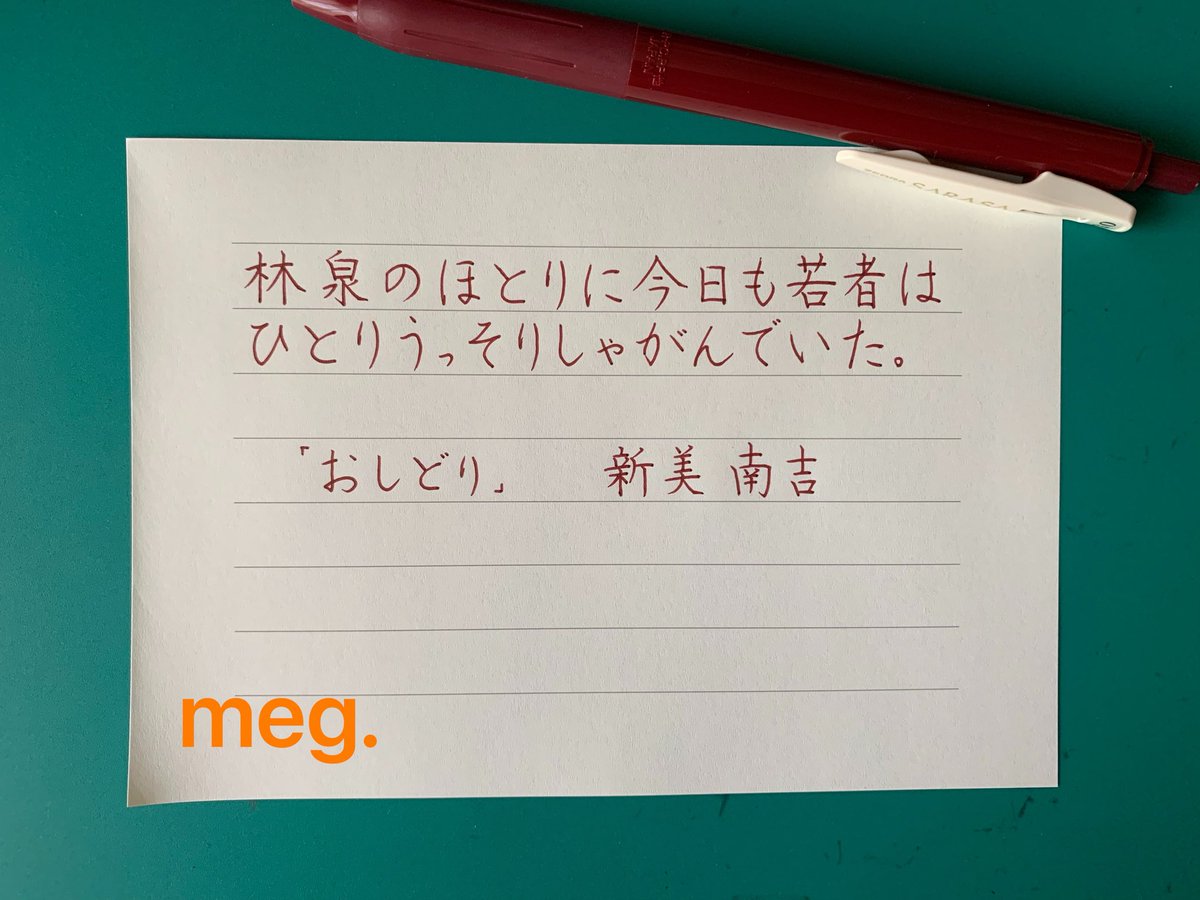 林泉のほとりに今日も若者は
ひとりうっそりしゃがんでいた。
「おしどり」 新美 南吉
meg.
SARASA